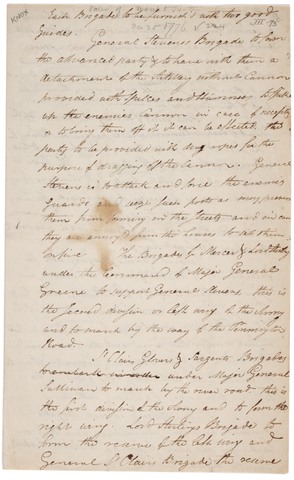 KNOX
Dec 25 1776
Each Brigade to be furnish'd with two good
guides.
General Stevens Brigade to form
the advanced party & to have with them a
detachment of the Artillery without Cannon
provided with Spikes and Hammers to Spike
up the enemies Cannon in case of necessity
or to bring them off if it can be effected, the
party to be provided with drag ropes for the
purpose of dragging off the Cannon. General
Stevens is to attack and force the enemies
Guards and seize such posts as may prevent
them from forming in the streets and in case
they are annoy'd from the houses to set them
on fire. The Brigades of Mercer & Lord Sterling
under the Command of Major General
Greene to support General Stevens this is
the Second division or left wing of the Army
and to march by the way of the Pennington
Road.
St Clairs Glovers & Sargents Brigades
under Major General
Sullivan to march by the river road this is
the first division of the Army and to form the
right wing. Lord Sterlings Brigade to
form the reserve of the left wing and
General St Clairs Brigade the reserve